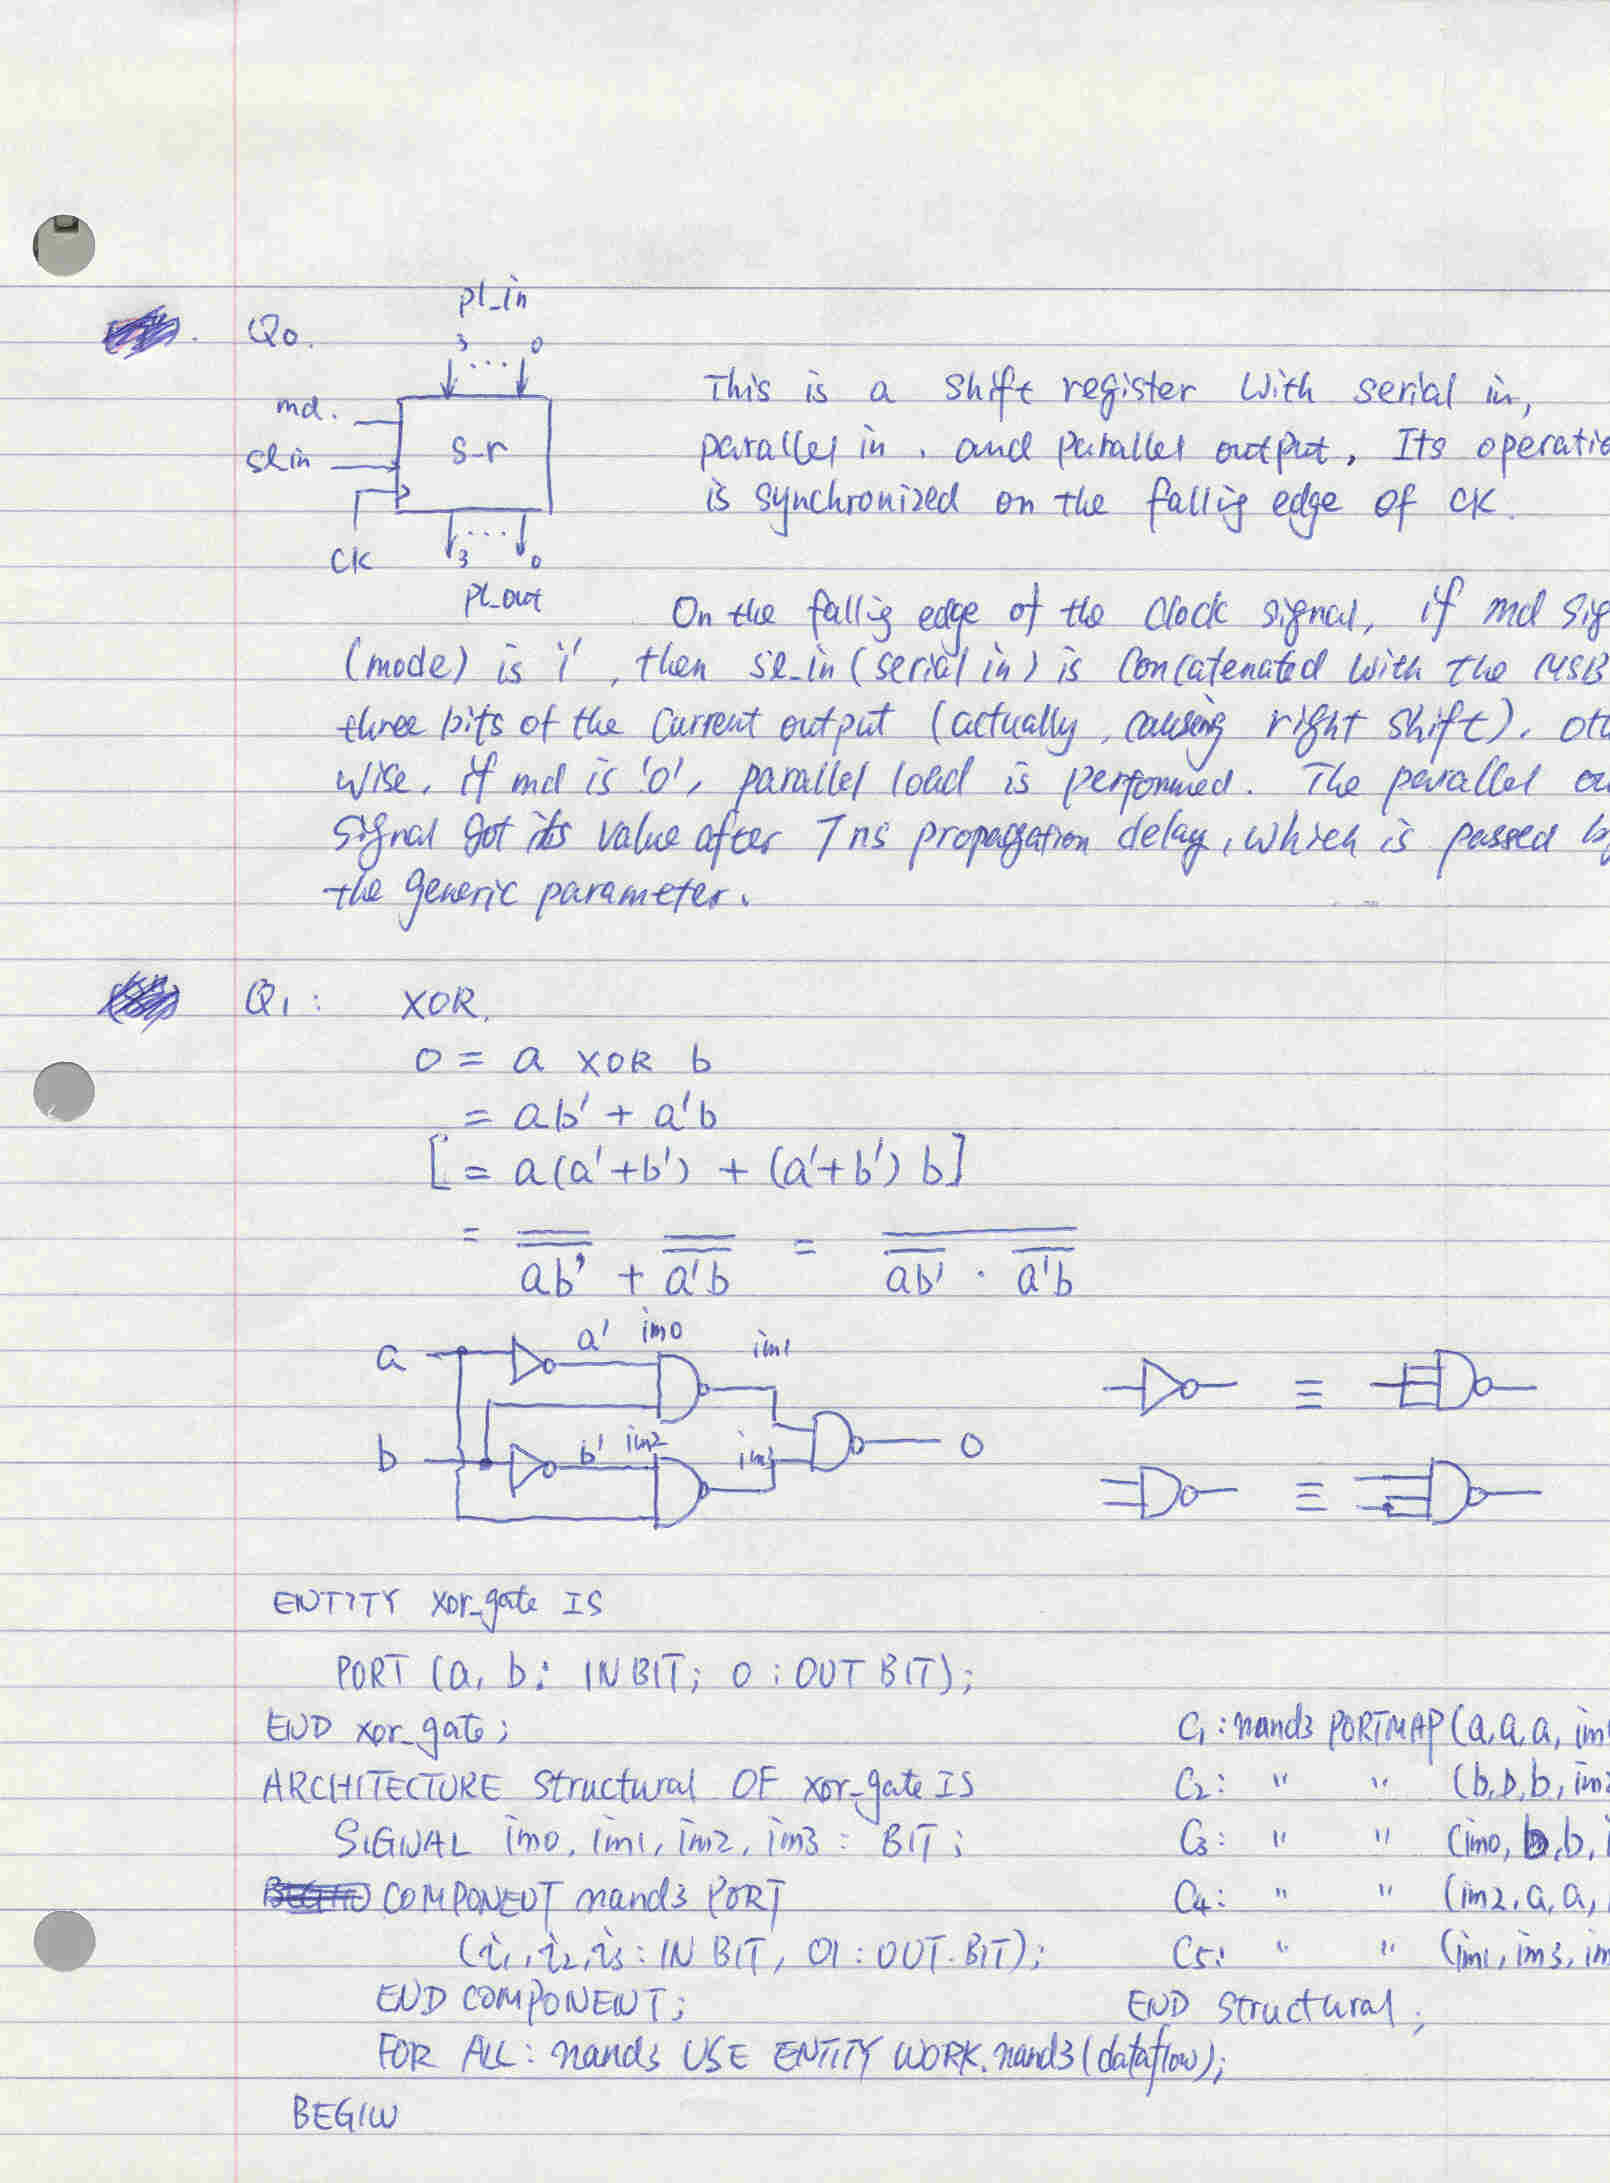 pl_in
Q0.
3 ... 0
md.
sl_in
s-r
CK
3 ... 0
pl_out
This is a shift register With serial in,
parallel in, and parallel output, Its operatio
is synchronized on the fallig edge of CK.
On the fallig edge of the Clock signal, if md sig
(mode) is '1', then sl_in (serial in) is Concatenated with the MSB
three bits of the Current output (actually, causing right shift). oth
wise, if md is '0', parallel load is performed. The parallel ou
signal got its value after 7ns propagation delay, which is passed by
the generic parameter.
Q1: XOR.
o = a XOR b
= ab' + a'b
[= a(a'+b') + (a'+b') b]
= ab' + a'b = ab' · a'b
a a' im0 im1
b b' im2 im3 o
≡
≡
ENTITY xor_gate IS
PORT (a, b: IN BIT; o: OUT BIT);
END xor_gate;
ARCHITECTURE structural OF xor_gate IS
SIGNAL im0, im1, im2, im3: BIT;
COMPONENT nand3 PORT
(i1, i2, i3: IN BIT, O1: OUT BIT);
END COMPONENT;
FOR ALL: nand3 USE ENTITY WORK.nand3(dataflow);
BEGIN
C1: nand3 PORTMAP (a,a,a, im
C2: " " (b,b,b, im2
C3: " " (im0, b,b, i
C4: " " (im2,a,a,
C5: " " (im1, im3, im
END structural;